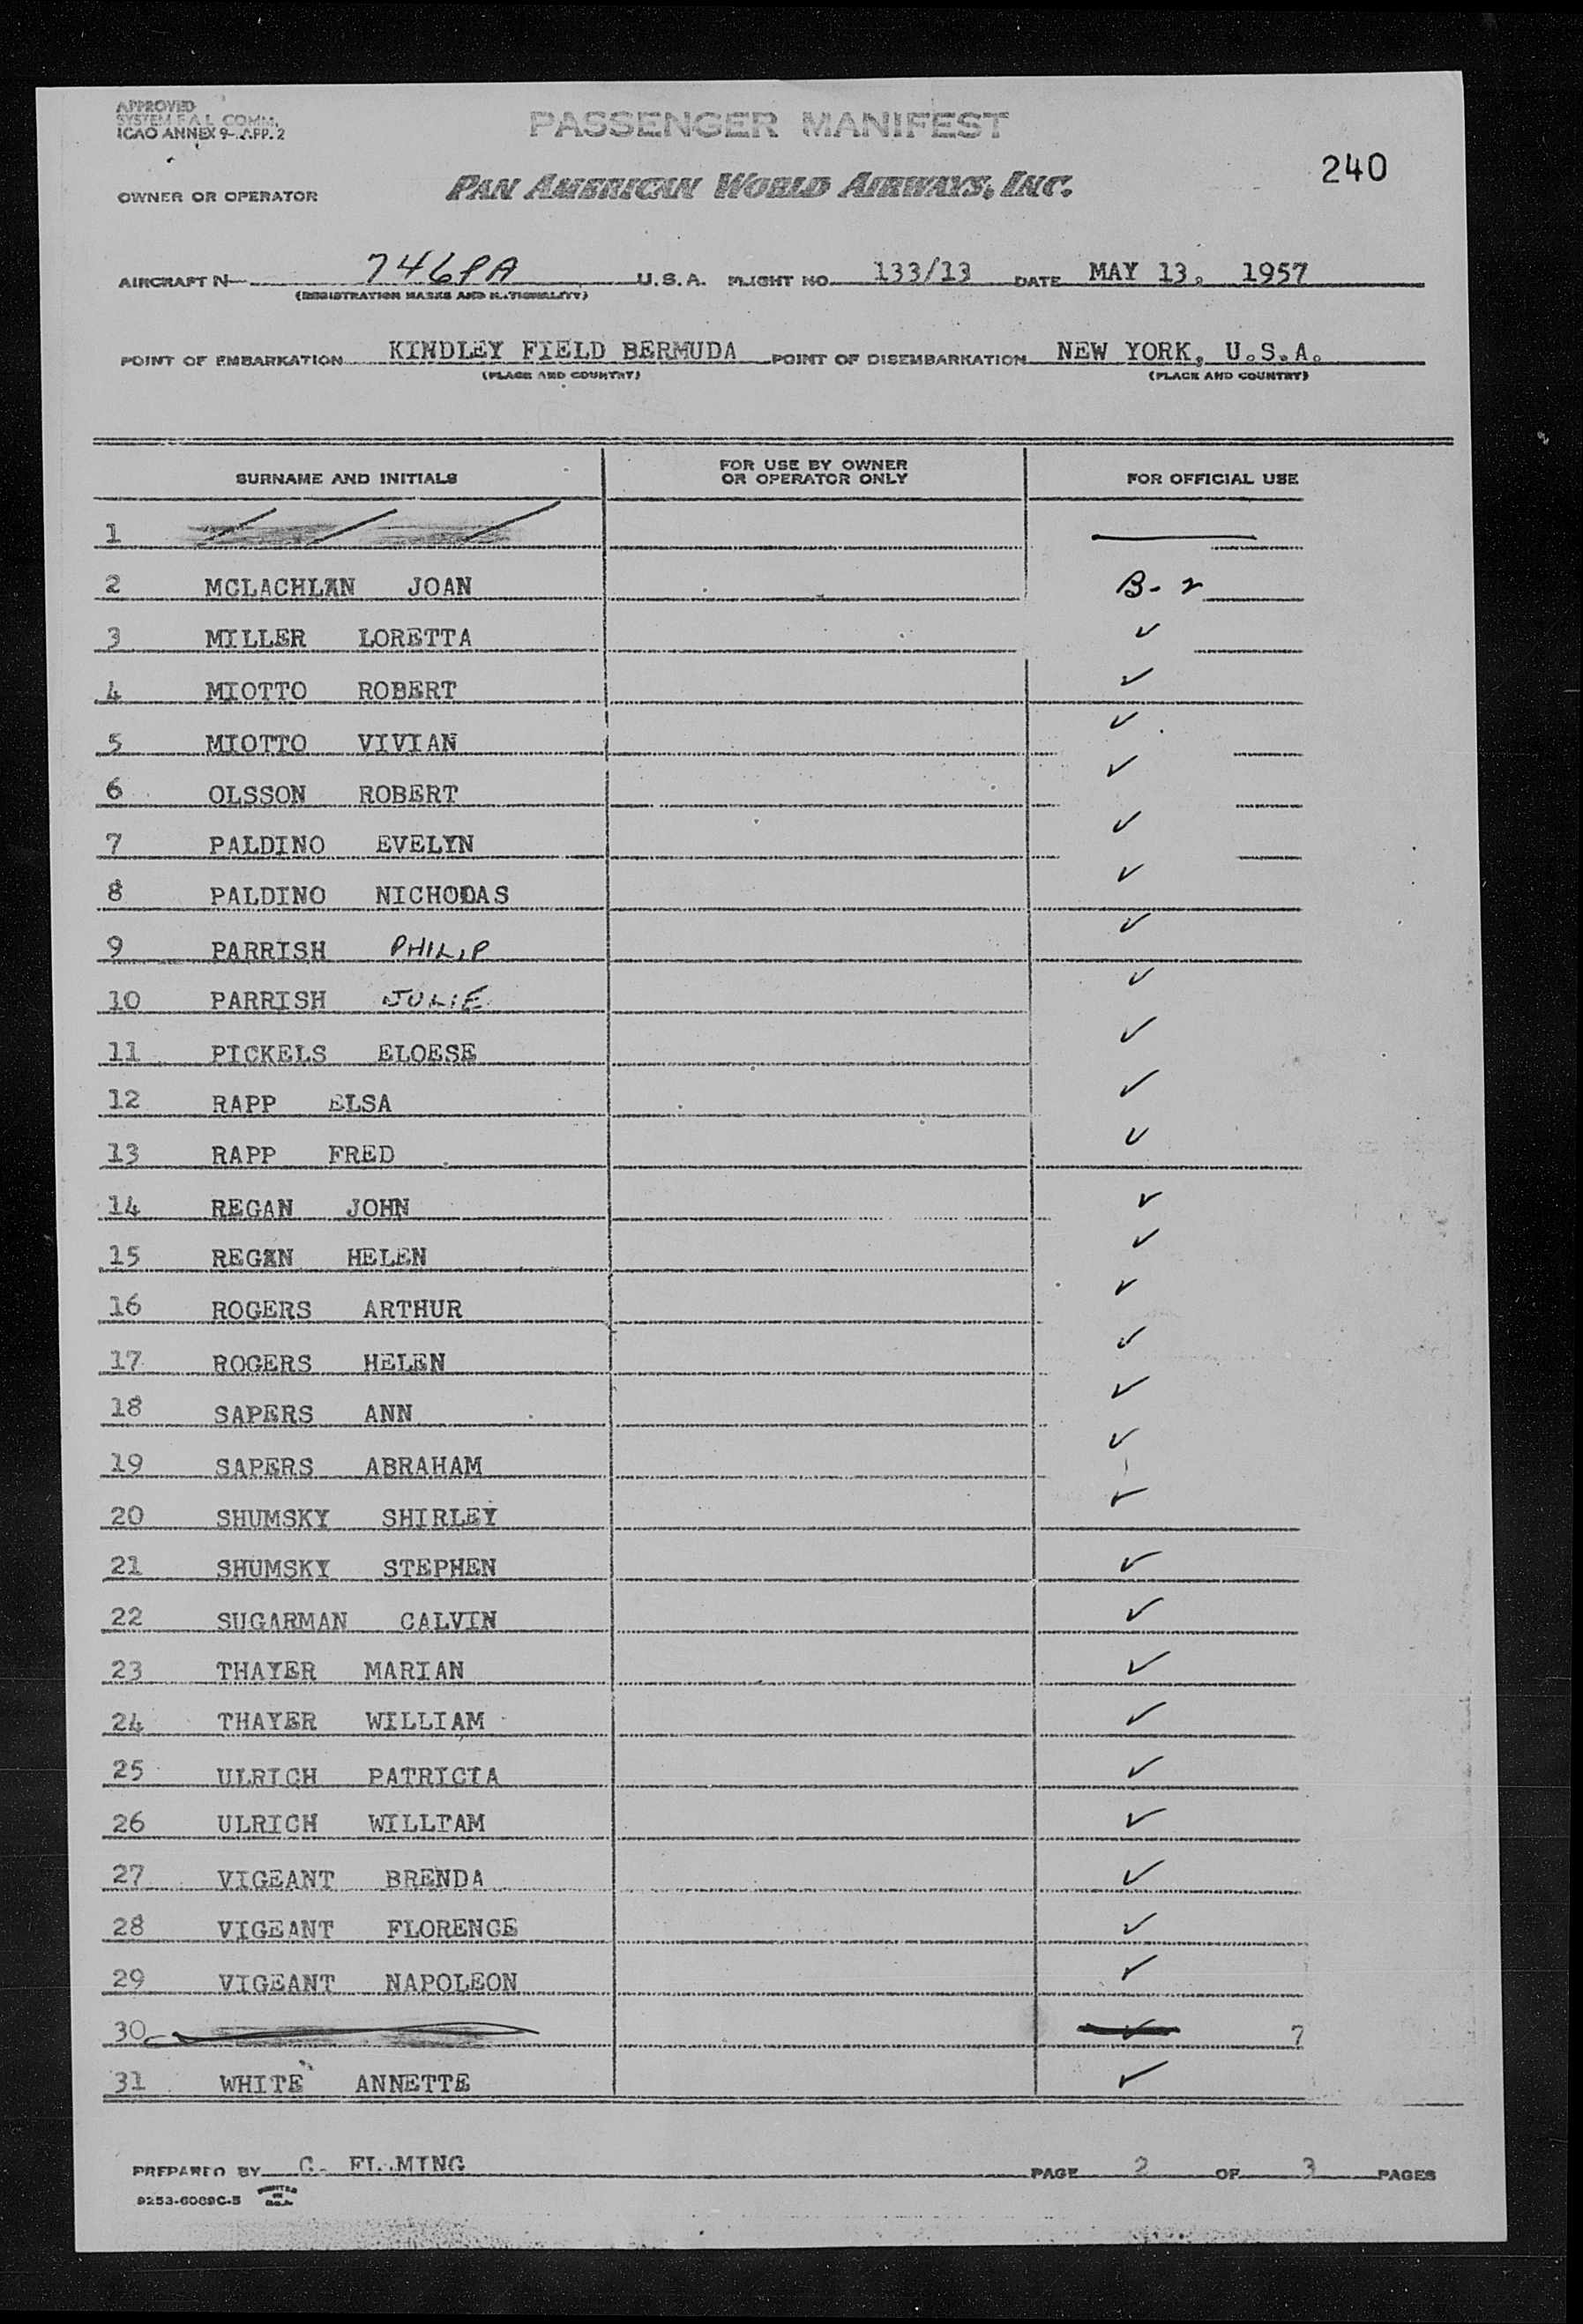 APPROVED
SYSTEM F.A.L. COMM.
ICAO ANNEX 9-APP. 2
PASSENGER MANIFEST
240
OWNER OR OPERATOR PAN AMERICAN WORLD AIRWAYS, INC.
AIRCRAFT N- 746PA U.S.A. FLIGHT NO. 133/13 DATE MAY 13, 1957
(REGISTRATION MARKS AND NATIONALITY)
POINT OF EMBARKATION KINDLEY FIELD BERMUDA POINT OF DISEMBARKATION NEW YORK, U.S.A.
(PLACE AND COUNTRY) (PLACE AND COUNTRY)
SURNAME AND INITIALS FOR USE BY OWNER OR OPERATOR ONLY FOR OFFICIAL USE
1
2 MCLACHLAN JOAN B-2
3 MILLER LORETTA ✓
4 MIOTTO ROBERT ✓
5 MIOTTO VIVIAN ✓
6 OLSSON ROBERT ✓
7 PALDINO EVELYN ✓
8 PALDINO NICHODAS ✓
9 PARRISH PHILIP ✓
10 PARRISH JULIE ✓
11 PICKELS ELOESE ✓
12 RAPP ELSA ✓
13 RAPP FRED ✓
14 REGAN JOHN ✓
15 REGAN HELEN ✓
16 ROGERS ARTHUR ✓
17 ROGERS HELEN ✓
18 SAPERS ANN ✓
19 SAPERS ABRAHAM ✓
20 SHUMSKY SHIRLEY ✓
21 SHUMSKY STEPHEN ✓
22 SUGARMAN CALVIN ✓
23 THAYER MARIAN ✓
24 THAYER WILLIAM ✓
25 ULRICH PATRICIA ✓
26 ULRICH WILLIAM ✓
27 VIGEANT BRENDA ✓
28 VIGEANT FLORENCE ✓
29 VIGEANT NAPOLEON ✓
30 7
31 WHITE ANNETTE ✓
PREPARED BY C. FLEMING PAGE 2 OF 3 PAGES
9253-6069C-5 PRINTED IN U.S.A.